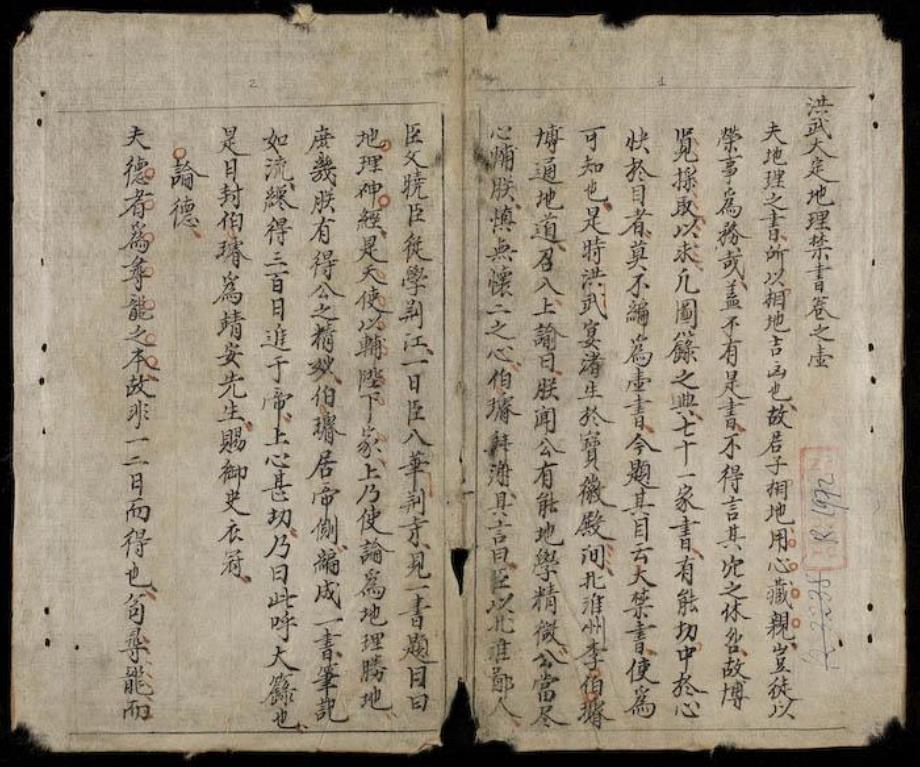 洪武大定地理禁書卷之壹
夫地理之書所以相地吉凶也故君子相地用心藏親豈徒以
榮事爲務哉盖不有是書不得言其穴之休咎故博
覽採取以求凢圖籙之典七十一家書有能切中於心
快於目者莫不編爲壹書今題其目云大禁書使爲
可知也是特洪武宴渚生於寶徽殿間北淮州李伯璿
博通地道召入上諭曰朕聞公有能地學精微公當尽
心輔朕慎無懷二之心伯璿拜謝具言曰臣以北淮鄙人
臣父曉臣從學荆江一日臣入華荆京見一書題目曰
地理神經是天使以輔陛下家上乃使論爲地理勝地
庶幾朕有得公之精妙伯璿居帝側編成一書筆記
如流終得三百日進于帝上心甚切乃曰此呼大籙也
是日封伯璿爲靖安先生賜御史衣冠
論德
夫德者爲尋龍之本故非一二日而得也苟尋龍而
1
2
R.1992